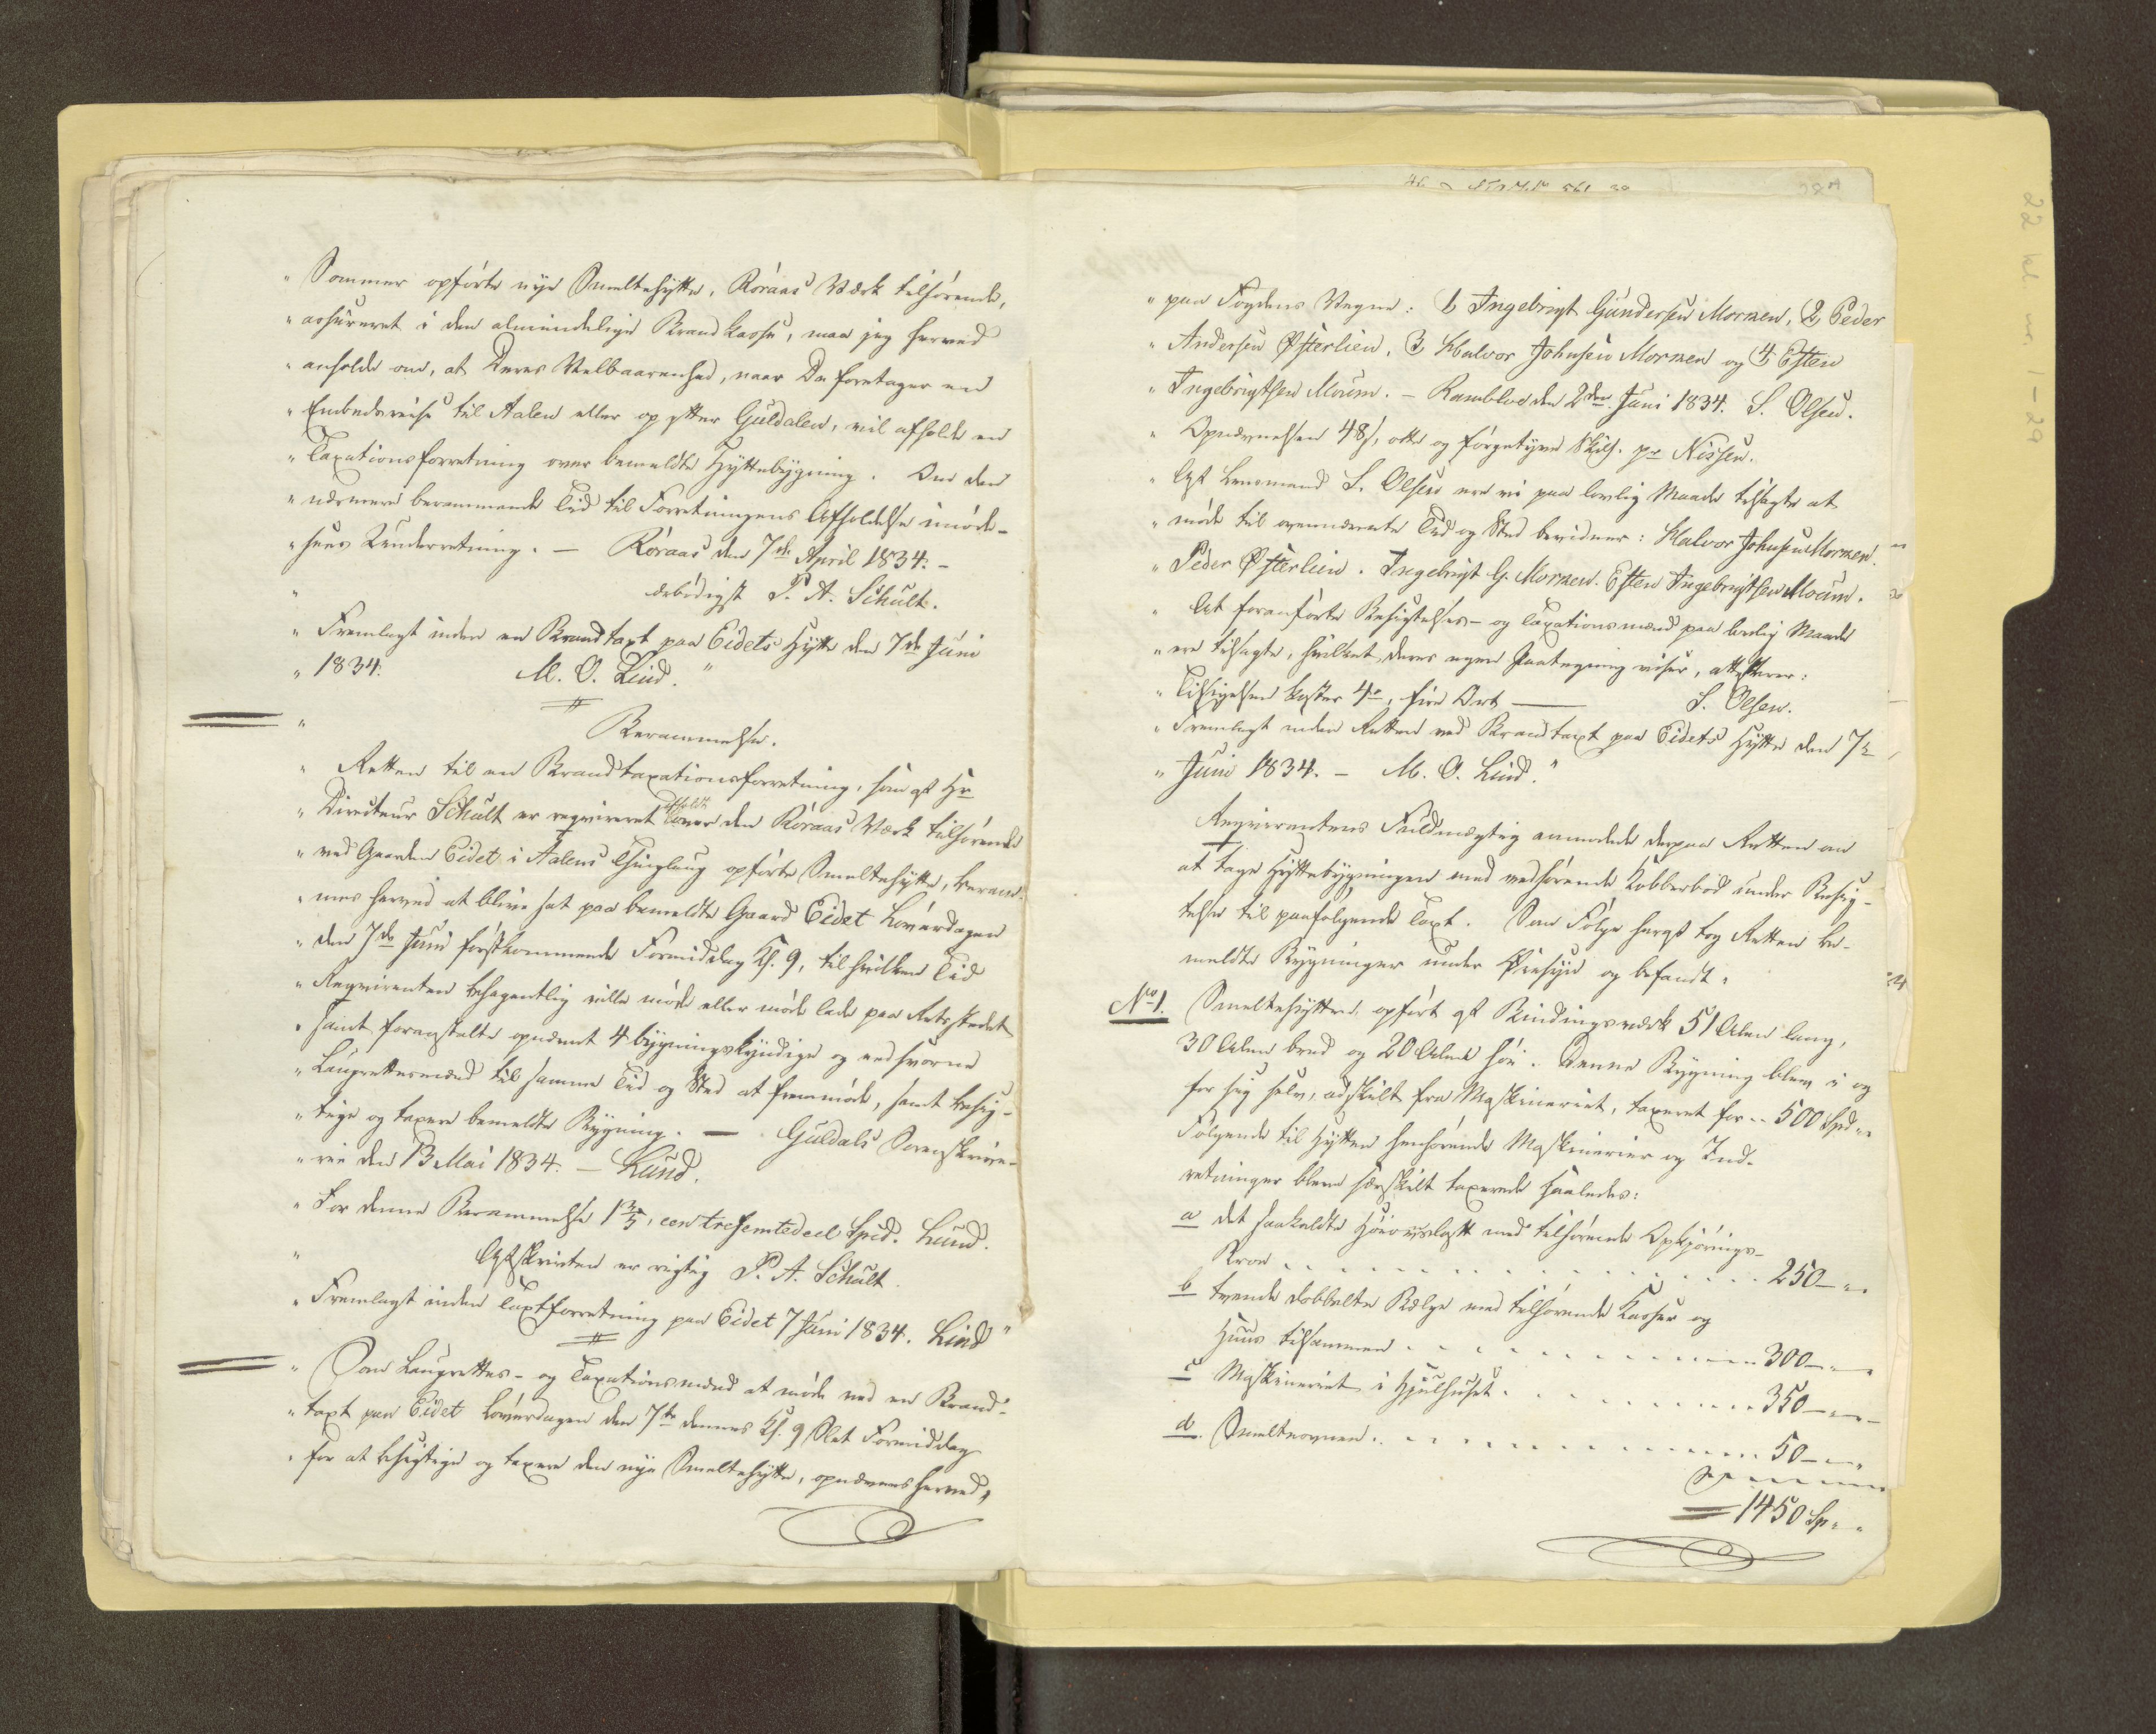 " Sommer opførte nye Smeltehytte, Røraas Værk tilhørende,
" assureret i den almindelige Brandkasse, maa jeg herved
" anholde om, at Deres Velbaarenhed, naar De foretager en
" Embedsreise til Aalen eller op efter Guldalen, vil afholde en
" Taxationsforretning over bemeldte Hyttebygning. Om den
" nærmere berammende Tid til Forretningens Afholdelse imøde-
" sees Underretning. — Røraas den 7de April 1834. -
" ærbødigst P. A. Schult.
" Fremlagt inden en Brandtaxt paa Eidets Hytte den 7de Juni
" 1834. M. O. Lind. "
" Berammelse.
" Retten til en Brandtaxationsforretning, som af Hr
" Directeur Schult er reqvireret afholdt over den Røraas Værk tilhørende
" ved Gaarden Eidet i Aalens Thinglaug opførte Smeltehytte, beram-
" mes herved at blive sat paa bemeldte Gaard Eidet Løverdagen
" den 7de Juni førstkommende Formiddag Kl. 9, til hvilken Tid
" Reqvirenten behagentlig ville møde eller møde lade paa Aastedet
" samt foranstalte opnævnt 4 bygningskyndige og eedsvorne
" Laugrettesmænd til samme Tid og Sted at fremmøde, samt besig-
" tige og taxere bemeldte Bygning. — Guldals Sorenskrive-
" rie den 13 Mai 1834. — Lund.
" For denne Berammelse 1 3/5, een trefemtedeel Spd. Lund.
" Afskriften er rigtig P. A. Schult.
" Fremlagt inden Taxtforretning paa Eidet 7 Juni 1834. Lind "
" Som Laugrettes- og Taxationsmænd at møde ved en Brand-
" taxt paa Eidet Løverdagen den 7de dennes Kl. 9 Slet Formiddag
" for at besigtige og taxere den nye Smeltehytte, opnævnes herved,
" paa Fogdens Vegne: 1 Ingebrigt Gundersen Morken, 2 Peder
" Andersen Østerlien, 3 Halvor Johnsen Morken og 4 Esten
" Ingebrigtsen Moum. - Rambloe den 2den Juni 1834. S. Olsen.
" Opnævnelsen 48 s, otte og førgetyve Skil. pr Nissen.
" Af Lensmand S. Olsen ere vi paa lovlig Maade tilsagte at
" møde til ovennævnte Tid og Sted bevidner: Halvor Johnsen Morken.
" Peder Østerlien. Ingebrigt G. Morken. Esten Ingebrigtsen Moum.
" At foranførte Besigtelses- og Taxationsmænd paa lovlig Maade
" ere tilsagte, hvilket deres egen Paategning viser, attesterer:
" Tilsigelsen koster 4 , fire Ort — S. Olsen.
" Fremlagt inden Retten ved Brandtaxt paa Eidets Hytte den 7de
" Juni 1834. — M. O. Lind. "
Reqvirentens Fuldmægtig anmodede derpaa Retten om
at tage Hyttebygningen med vedhørende Kobberbod under Besig-
telse til paafølgende Taxt. Som Følge heraf tog Retten be-
meldte Bygninger under Øiesyn og befandt:
No 1. Smeltehytten, opført af Bindingsværk 51 Alen lang,
30 Alen bred og 20 Alen høi. Denne Bygning blev i og
for sig selv, adskilt fra Maskineriet, taxeret for .. 500 Spd "
Følgende til Hytten henhørende Maskinerier og Ind-
retninger bleve særskilt taxerede saaledes:
a det saakaldte med tilhørende Opkjørings-
Broe . . . . . 250 — "
b tvende dobbelte Bælge med tilhørende Kasser og
Huus tilsammen . . . . . 300 — "
c Maskineriet i Hjulhuset . . . . . 350 — "
d. Smelteovnen . . . . . 50 — "
= 1450 Sp. "
22 kl nr 1-29